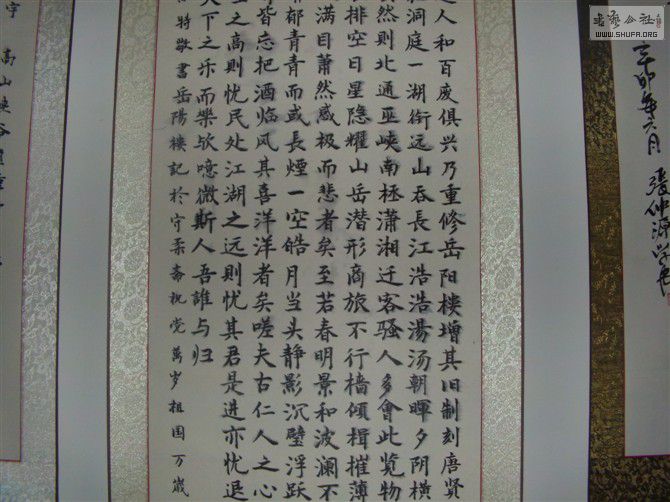 書藝公社
WWW.SHUFA.ORG
辛卯年六月
人和百废俱兴乃重修岳阳楼增其旧制刻唐贤
洞庭一湖衔远山吞長江浩浩湯汤朝暉夕阴横
然则北通巫峡南極瀟湘迁客骚人多會此览物
排空日星隐耀山岳潜形商旅不行樯傾楫摧薄
满目萧然感极而悲者矣至若春明景和波澜不
郁青青而或長煙一空皓月当头静影沉璧浮跃
皆忘把酒临风其喜洋洋者矣嗟夫古仁人之心
之高则忧民处江湖之远则忧其君是进亦忧退
天下之乐而樂欤噫微斯人吾誰与归
特敬書岳陽樓記於守柔斋祝党萬岁祖国万歲
宇
高山峡谷